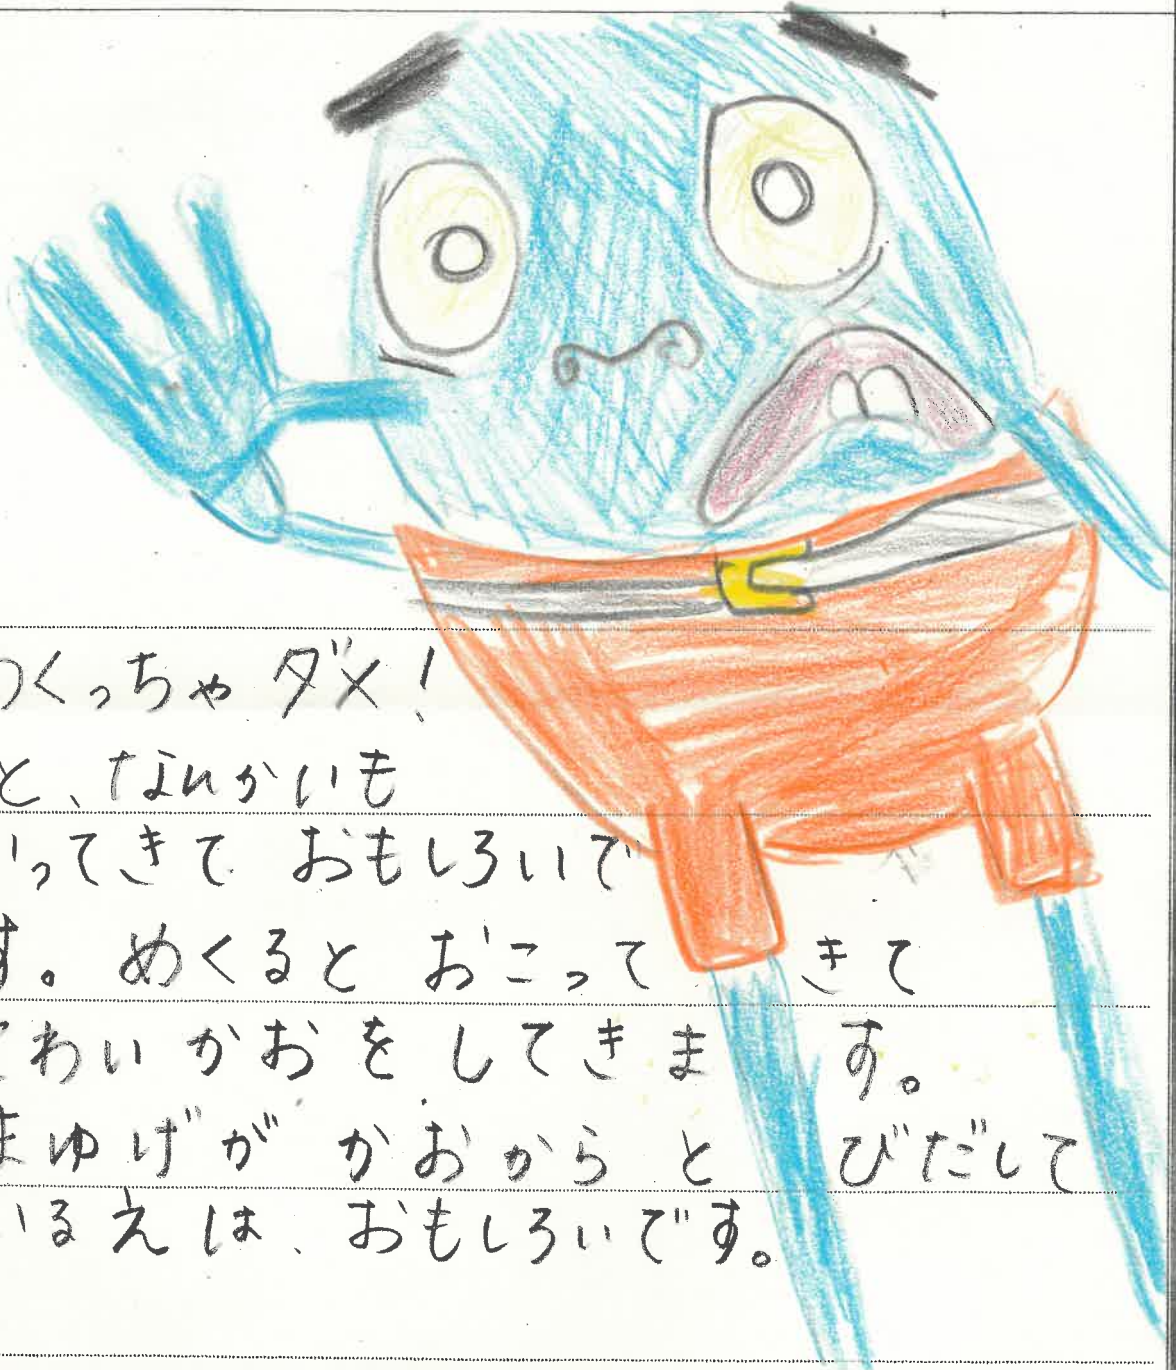 くっちゃ ダメ!
と、なんかいも
ってきて おもしろいで
す。めくると おこって きて
こわい かおを してきま す。
まゆげが かおから と びだして
いる えは、おもしろいです。